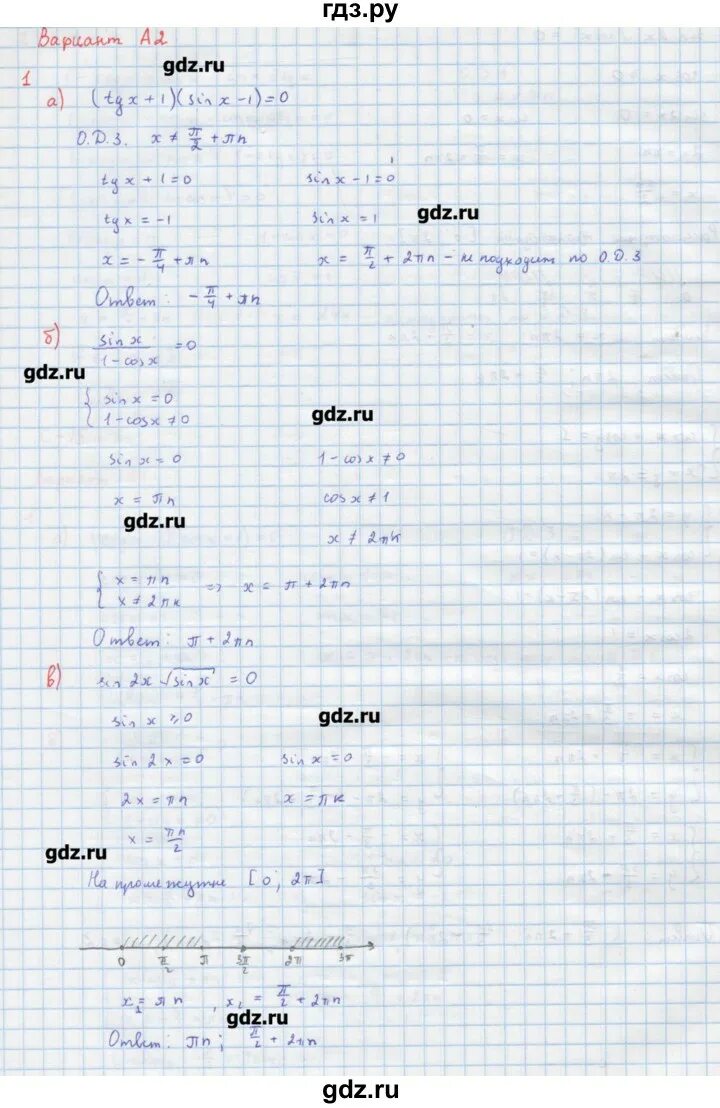 гдз.ру
Вариант А2
gdz.ru
1
а) (tg x + 1)(sin x - 1) = 0
О.Д.З. x ≠ π/2 + πn
tg x + 1 = 0 sin x - 1 = 0
tg x = -1 sin x = 1
gdz.ru
x = - π/4 + πn x = π/2 + 2πn - не подходит по О.Д.З
Ответ: - π/4 + πn
б) sin x / 1 - cos x = 0
gdz.ru
{ sin x = 0
1 - cos x ≠ 0
gdz.ru
sin x = 0 1 - cos x ≠ 0
x = πn cos x ≠ 1
gdz.ru
x ≠ 2πk
{ x = πn => x = π + 2πn
x ≠ 2πk
Ответ: π + 2πn
в) sin 2x √sin x = 0
sin x ≥ 0
gdz.ru
sin 2x = 0 sin x = 0
2x = πn x = πk
x = πn/2
gdz.ru
На промежутке [0; 2π]
0 π/2 π 3π/2 2π 3π
x₁ = πn, x₂ = π/2 + 2πn
gdz.ru
Ответ: πn; π/2 + 2πn
gdz.ru